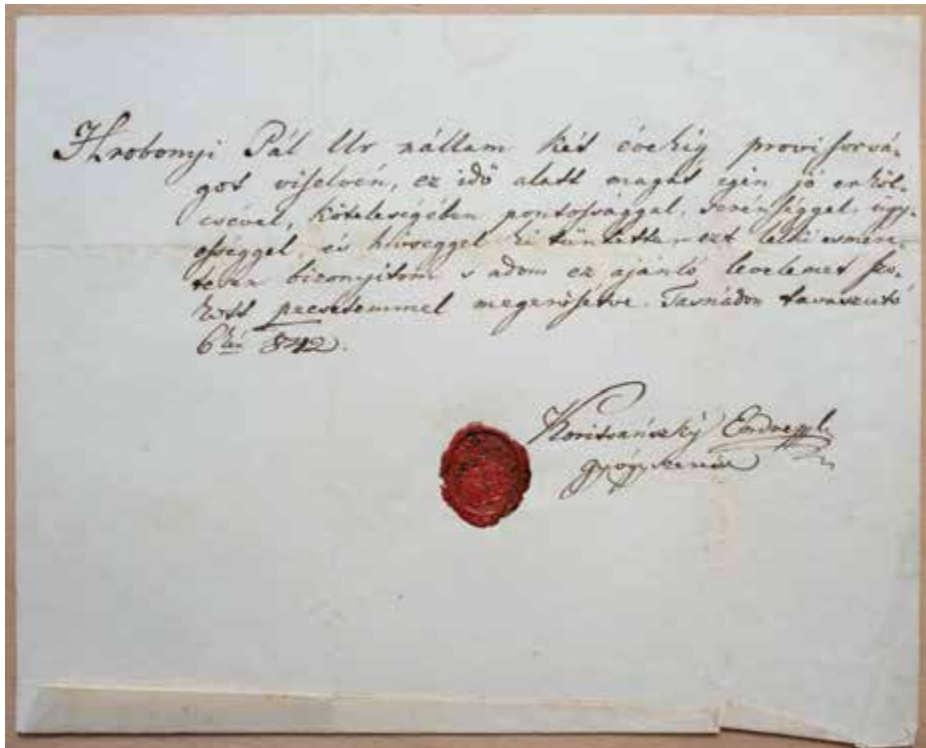 Hrobonyi Pál Ur nállam két évekig provisorsá-
got viselvén, ez idő alatt magát igen jó erköl-
csével, kötelességében pontossággal, serénységgel, ügy-
ességgel, és hűséggel kitüntette, ezt lelki esmére-
tesen bizonyitom s adom ez ajánló levelemet szo-
kott pecsetemmel megerősitve. Tasnádon tavaszutó
6kán 842.
Koritsánszky Endre
gyógyszerész